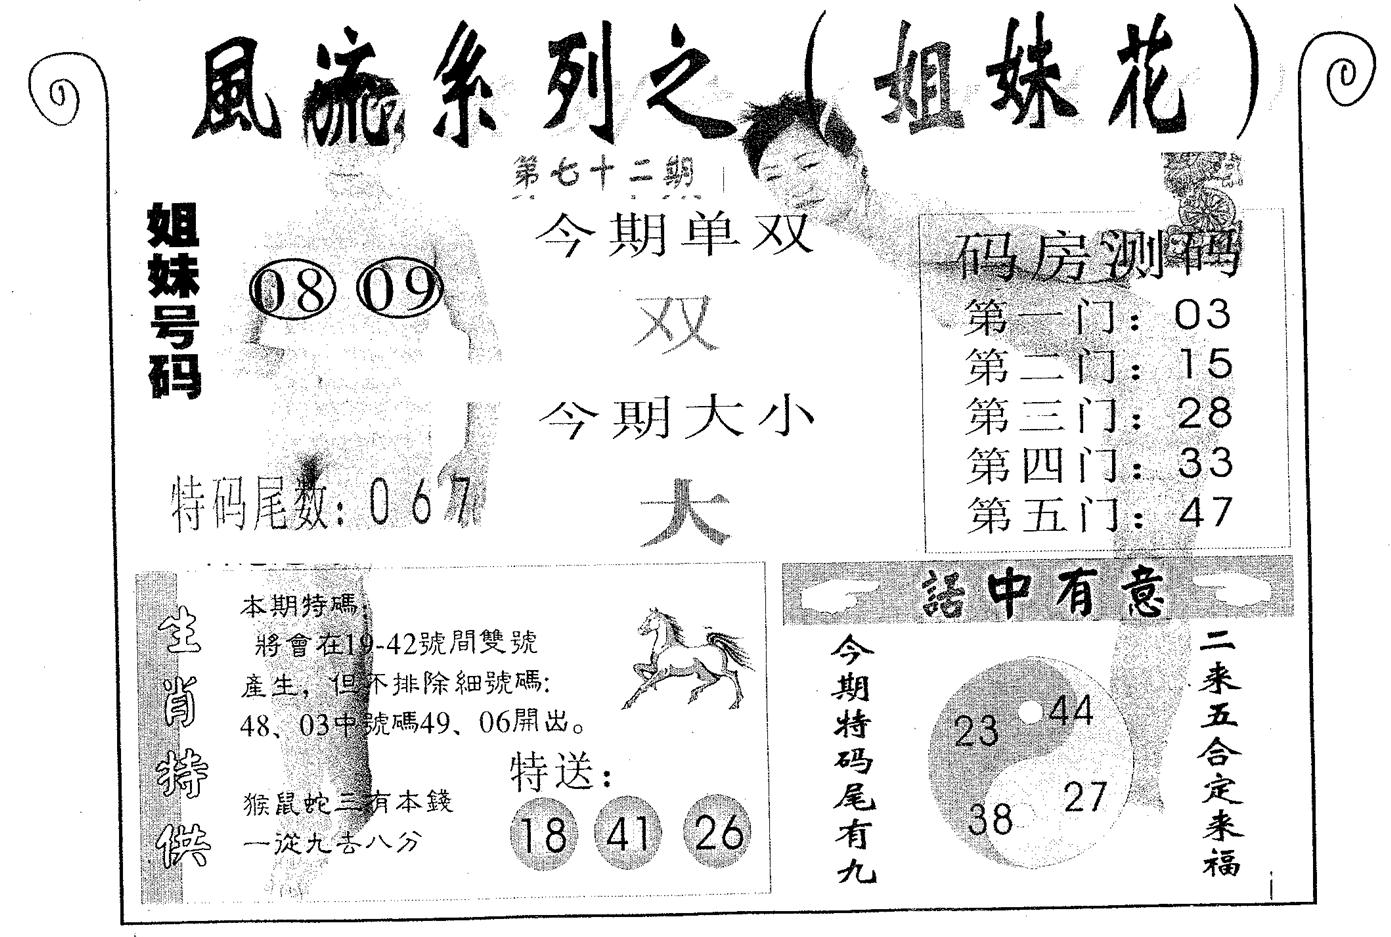 風流系列之（姐妹花）
第七十二期
姐妹号码
08 09
特码尾数：067
今期单双
双
今期大小
大
码房测码
第一门：03
第二门：15
第三门：28
第四门：33
第五门：47
生肖特供
本期特碼：
將會在19-42號間雙號
產生，但不排除細號碼：
48、03中號碼49、06開出。
猴鼠蛇三有本錢
一從九去八分
特送：
18 41 26
話中有意
今期特码尾有九
23 44
38 27
二来五合定来福